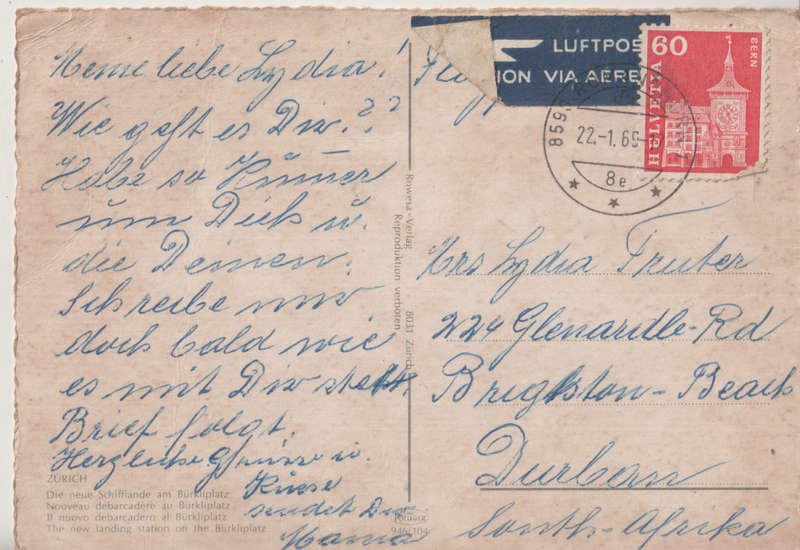 Meine liebe Lydia!
Wie geht es Dir??
Habe so Kummer
um Dich u.
die Deinen.
Schreibe mir
doch bald wie
es mit Dir steht.
Brief folgt.
Herzliche Grüsse u.
Küsse
sendet Dir
Mama
ZÜRICH
Die neue Schifflände am Bürkliplatz
Nouveau débarcadère au Bürkliplatz
Il nuovo debarcadero al Bürkliplatz
The new landing station on the Bürkliplatz
Rowesa-Verlag 8031 Zürich
Reproduktion verboten
946/104
LUFTPOS
ION VIA AERE
60
HELVETIA
BERN
859
22.-1.69-
8e
Mrs Lydia Truter
224 Glenardle-Rd
Brighton-Beach
Durban
South-Afrika